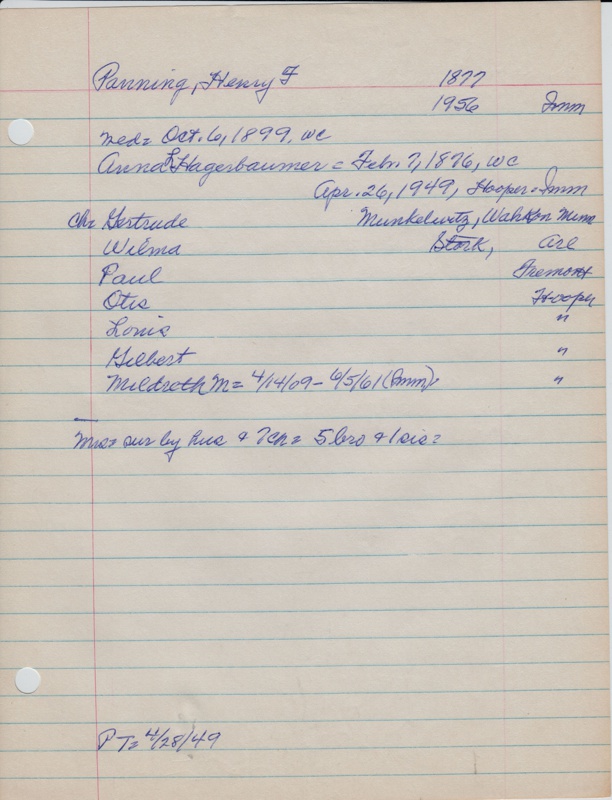 Panning, Henry F 1877
1956 Imm
med= Oct. 6, 1899, WC
Anna L Hagerbaumer = Feb. 7, 1876, WC
Apr. 26, 1949, Hooper - Imm
Ch= Gertrude Munkelwitz, Wahkon Minn
Wilma Stork, Arl
Paul Fremont
Otis Hooper
Louis "
Gilbert "
Mildroth M= 4/14/09 - 6/5/61 (Imm) "
Mrs= sur by hus & 7ch= 5 bro & 1 sis=
PT= 4/28/49